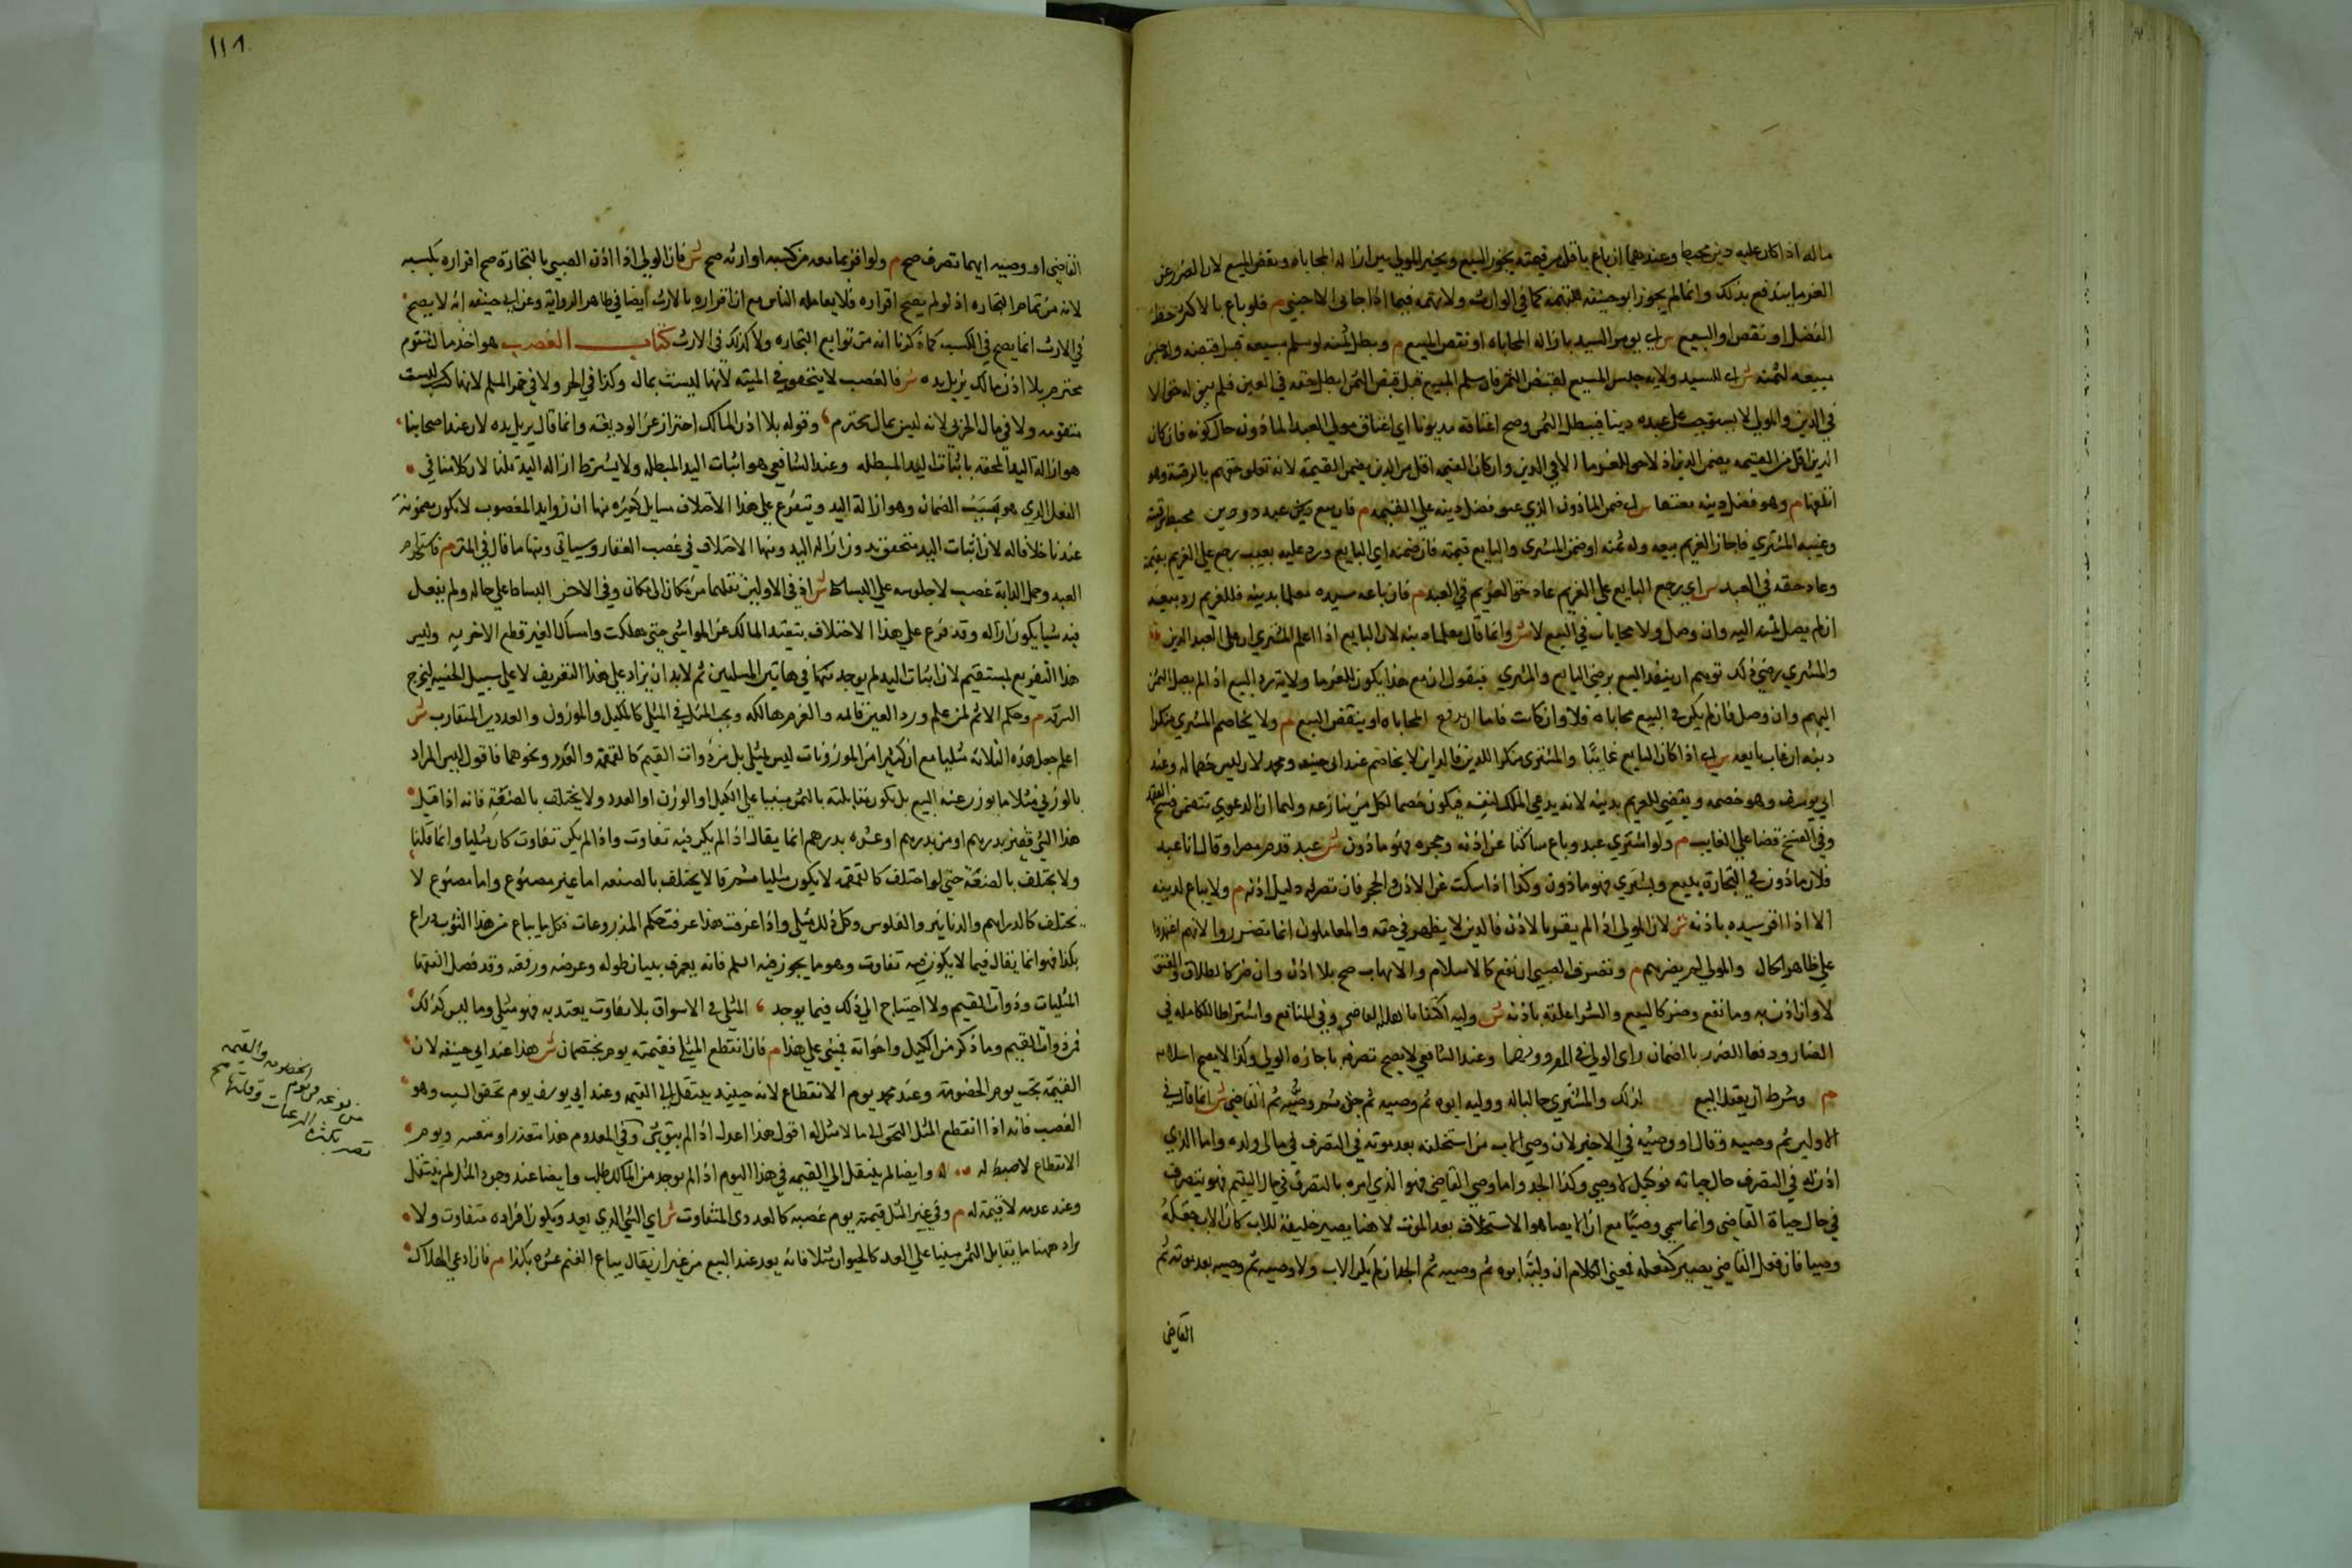 ماله اذا كان عليه دين محيط وعندهما ان باع باقل من قيمته يجوز البيع ويخير المولى بين ازالة المحاباه ونقض البيع لان الضرر عن
الغرما يندفع بذلك وانما لم يجوز ابو حنيفه للتهمة كما في الوارث ولا تهمه فيما اذا حابى الاجنبي م فلو باع بالاكثر حط
الفضل او نقض البيع ش اي يومر السيد بازالة المحاباه او نقض البيع م وبطل ثمنه لو سلم مبيعه قبل قبضه وله حبس
مبيعه لثمنه ش اي للسيد ولاية حبس المبيع لقبض الثمن فان سلم المبيع قبل قبض الثمن ابطل حقه في العين فلم يبق له حق الا
في الدين والمولى لا يستوجب على عبده دينا فيبطل الثمن وصح اعتاقه مديونا اي اعتاق مولى العبد الماذون حال كونه فان كان
الدين اقل من القيمه يضمن الدين اذ لا حق للغرما الا في الدين وان كان القيمه اقل من الدين يضمن القيمة لانه تعلق حقهم بالرقبة وهو
اتلفها م وهو فضل دينه معتقا ش اي ضمن الماذون الذي عتق فضل دينه على القيمه م فان بيع عبد ذو دين محيط برقبته
وغيبه المشتري فاجاز الغريم بيعه وله ثمنه او ضمن المشتري والبايع قيمته فان ضمنه اي البايع ورد عليه بعيب رجع على الغريم بقيمته
وعاد حقه في العبد ش اي يرجع البايع على الغريم عاد حق الغريم في العبد م فان باعه سيده معلما بدينه فللغريم رد بيعه
ان لم يصل ثمنه اليه وان وصل ولا محابات في البيع لا ش وانما قال معلما بدينه لان البايع اذا اعلم المشتري ان على العبد الدين
والمشتري رضي ذلك توهم ان ينفذ البيع برضى البايع والمشتري فيقول ان مع هذا يكون للغرما ولاية رد البيع اذا لم يصل الثمن
اليهم وان وصل فان لم يكن في البيع محاباه فلا وان كانت فاما ان يدفع المحاباه او ينقض البيع م ولا يخاصم المشتري منكرا
دينه ان غاب بايعه ش اي اذا كان البايع غايبا والمشتري منكرا للدين فالدائن لا يخاصم عند ابي حنيفه ومحمد لانه ليس خصما له وعند
ابي يوسف وهو خصمه ويقضى للغريم بدينه لانه يدعي الملك لنفسه فيكون خصما لكل من ينازعه ولهما ان الدعوى تتضمن فسخ العقد
وفي الفسخ قضا على الغايب م ولو اشترى عبد وباع ساكتا عن اذنه وحجره فهو ماذون ش عبد قدم مصرا وقال انا عبد
فلان ماذون في التجارة يبيع ويشتري فهو ماذون وكذا اذا سكت عن الاذن والحجر فان تصرفه دليل اذنه م ولا يباع لدينه
الا اذا اقر سيده باذنه ش لان المولى اذا لم يقر بالاذن فالدين لا يظهر في حقه والمعاملون انما تضرروا لانهم اعتمدوا
على ظاهر الحال والمولى لم يضرهم م وتصرف الصبي ان نفع كالاسلام والاتهاب صح بلا اذن وان ضر كالطلاق والعتق
لا وان اذن به وما نفع وضر كالبيع والشرا علق باذنه ش وليه
الضار ودفعا للضرر بانضمام راى الولي وعند الشافعي لا يصح تصرفه باجازه الولي وكذا لا يصح اسلامه
م وشرط ان يعقل البيع لذلك والمشتري جالباله ووليه ابوه ثم وصيه ثم جده ثم وصيه ثم القاضي ش انما قال في
الاولين ثم وصيه وقال او وصيه في الاخير لان وصي الاب من استخلفه بعد موته في التصرف في مال ولده واما الذي
اذن له في التصرف حال حياته فوكيل لا وصي وكذا الجد واما وصي القاضي فهو الذي امره بالتصرف في مال اليتيم فهو يتصرف
في حال حياة القاضي وانما سمي وصيا مع ان الايصا هو الاستخلاف بعد الموت لان هنا يصير خليفة للاب كان الاب جعله
وصيا فان فعل القاضي يصير كفعله فمعنى الكلام ان وليه ابوه ثم وصيه ثم الجد ان لم يكن الاب ولا وصيه ثم وصيه بعد موته ثم
القاضي
١١٨
القاضي او وصيه ايهما تصرف صح م ولو اقر بما معه من كسبه او ارثه صح ش فان الولي اذا اذن الصبي بالتجارة صح اقراره بكسبه
لانه من تمام التجاره اذ لو لم يصح اقراره فلا يعامله الناس مع ان اقراره بالارث ايضا في ظاهر الرواية وعن ابي حنيفه انه لا يصح
في الارث انما يصح في الكسب كما ذكرنا انه من توابع التجاره ولا كذلك في الارث كتاب الغصب هو اخذ مال متقوم
محترم بلا اذن مالكه يزيل يده ش فالغصب لا يتحقق في الميته لانها ليست بمال وكذا في الحر ولا في خمر المسلم لانها ليست
متقومه ولا في مال الحربي لانه ليس بمال محترم وقوله بلا اذن المالك احتراز عن الوديعة وانما قال يزيل يده لان عند اصحابنا
هو ازالة اليد المحقه باثبات اليد المبطله وعند الشافعي هو اثبات اليد المبطله ولا يشترط ازالة اليد قلنا لان كلامنا في
الفعل الذي هو سبب الضمان وهو ازالة اليد ويتفرع على هذا الاختلاف مسايل كثيره منها ان زوايد المغصوب لا تكون مضمونة
عندنا خلافا له لان اثبات اليد متحقق بدون ازالة اليد ومنها الاختلاف في غصب العقار وسياتي ومنها ما قال في المتن م فاستخدام
العبد وحمل الدابة غصب لا جلوسه على البساط ش اذ في الاولين نقلهما من مكان الى مكان وفي الاخر البساط على حاله ولم يفعل
فيه شيا يكون ازاله وقد فرع على هذا الاختلاف تبعيد المالك عن المواشي حتى هلكت وامساك الغير قطع الاخر به وليس
هذا التفريع بمستقيم لان اثبات اليد لم يوجد في هاتين المسئلتين ثم لا بد ان يزاد على هذا التعريف لا على سبيل الخفيه ليخرج
السرقه م وحكمه الاثم لمن علم ورد العين قائمه والغرم هالكه ويجب المثل في المثلي كالمكيل والموزون والعددي المتقارب ش
اعلم جعل هذه الثلاثة مثليا مع ان كثيرا من الموزونات ليس بمثلي بل من ذوات القيم كالقمقمه والقدر ونحوهما فاقول ليس المراد
بالوزني مثلا ما يوزن عند البيع بل يكون مقابلته بالثمن مبنيا على الكيل او الوزن او العدد ولا يختلف بالصنعة فانه اذا قيل
هذا الشي قفيز بدرهم او من بدرهم او عشره بدرهم انما يقال اذا لم يكن فيه تفاوت واذا لم يكن تفاوت كان مثليا وانما قلنا
ولا يختلف بالصنعة حتى لو اختلف كالقمقمه لا يكون مثليا ثم ما لا يختلف بالصنعه اما غير مصنوع واما مصنوع لا
يختلف كالدراهم والدنانير والفلوس وكل ذلك مثلي واذا عرفت هذا عرفت حكم المذروعات فكل ما يباع من هذا الثوب ذراع
بكذا فهو انما يقال فيما لا يكون فيه تفاوت وهو ما يجوز فيه السلم فانه يعرف ببيان طوله وعرضه ورقعه وقد فصل الفقها
المثليات وذوات القيم ولا احتياج الى ذلك فيما يوجد المثلي في الاسواق بلا تفاوت يعتد به فهو مثلي وما ليس كذلك
فمن ذوات القيم وما ذكر من الكيل واخواته فمبني على هذا م فان انقطع المثلي فقيمته يوم يختصمان ش هذا عند ابي حنيفه لان
القيمة تجب يوم الخصومة وعند محمد يوم الانقطاع لانه حينئذ ينتقل الى القيمه وعند ابي يوسف يوم تحقق السبب وهو
الغصب فانه اذا انقطع المثل التحق بما لا مثل له اقول هذا اعدل اذا لم يبق شي وفي المعدوم هذا متعذر او متعسر ويوم
الانقطاع لا ضبط له وايضا لم ينتقل الى القيمه في هذا اليوم اذ لم يوجد من المالك طلب وايضا عند وجود المثل لم ينتقل
وعند عدمه لا قيمة له م وفي غير المثل قيمته يوم غصبه كالعددي المتفاوت ش اي الشي الذي يعد ويكون افراده متفاوت ولا
يراد ههنا ما يقابل الثمن مبنيا على العدد كالحيوان مثلا فانه يعد عند البيع من غير ان يقال يباع الغنم عشره بكذا م فان ادعى الهلاك